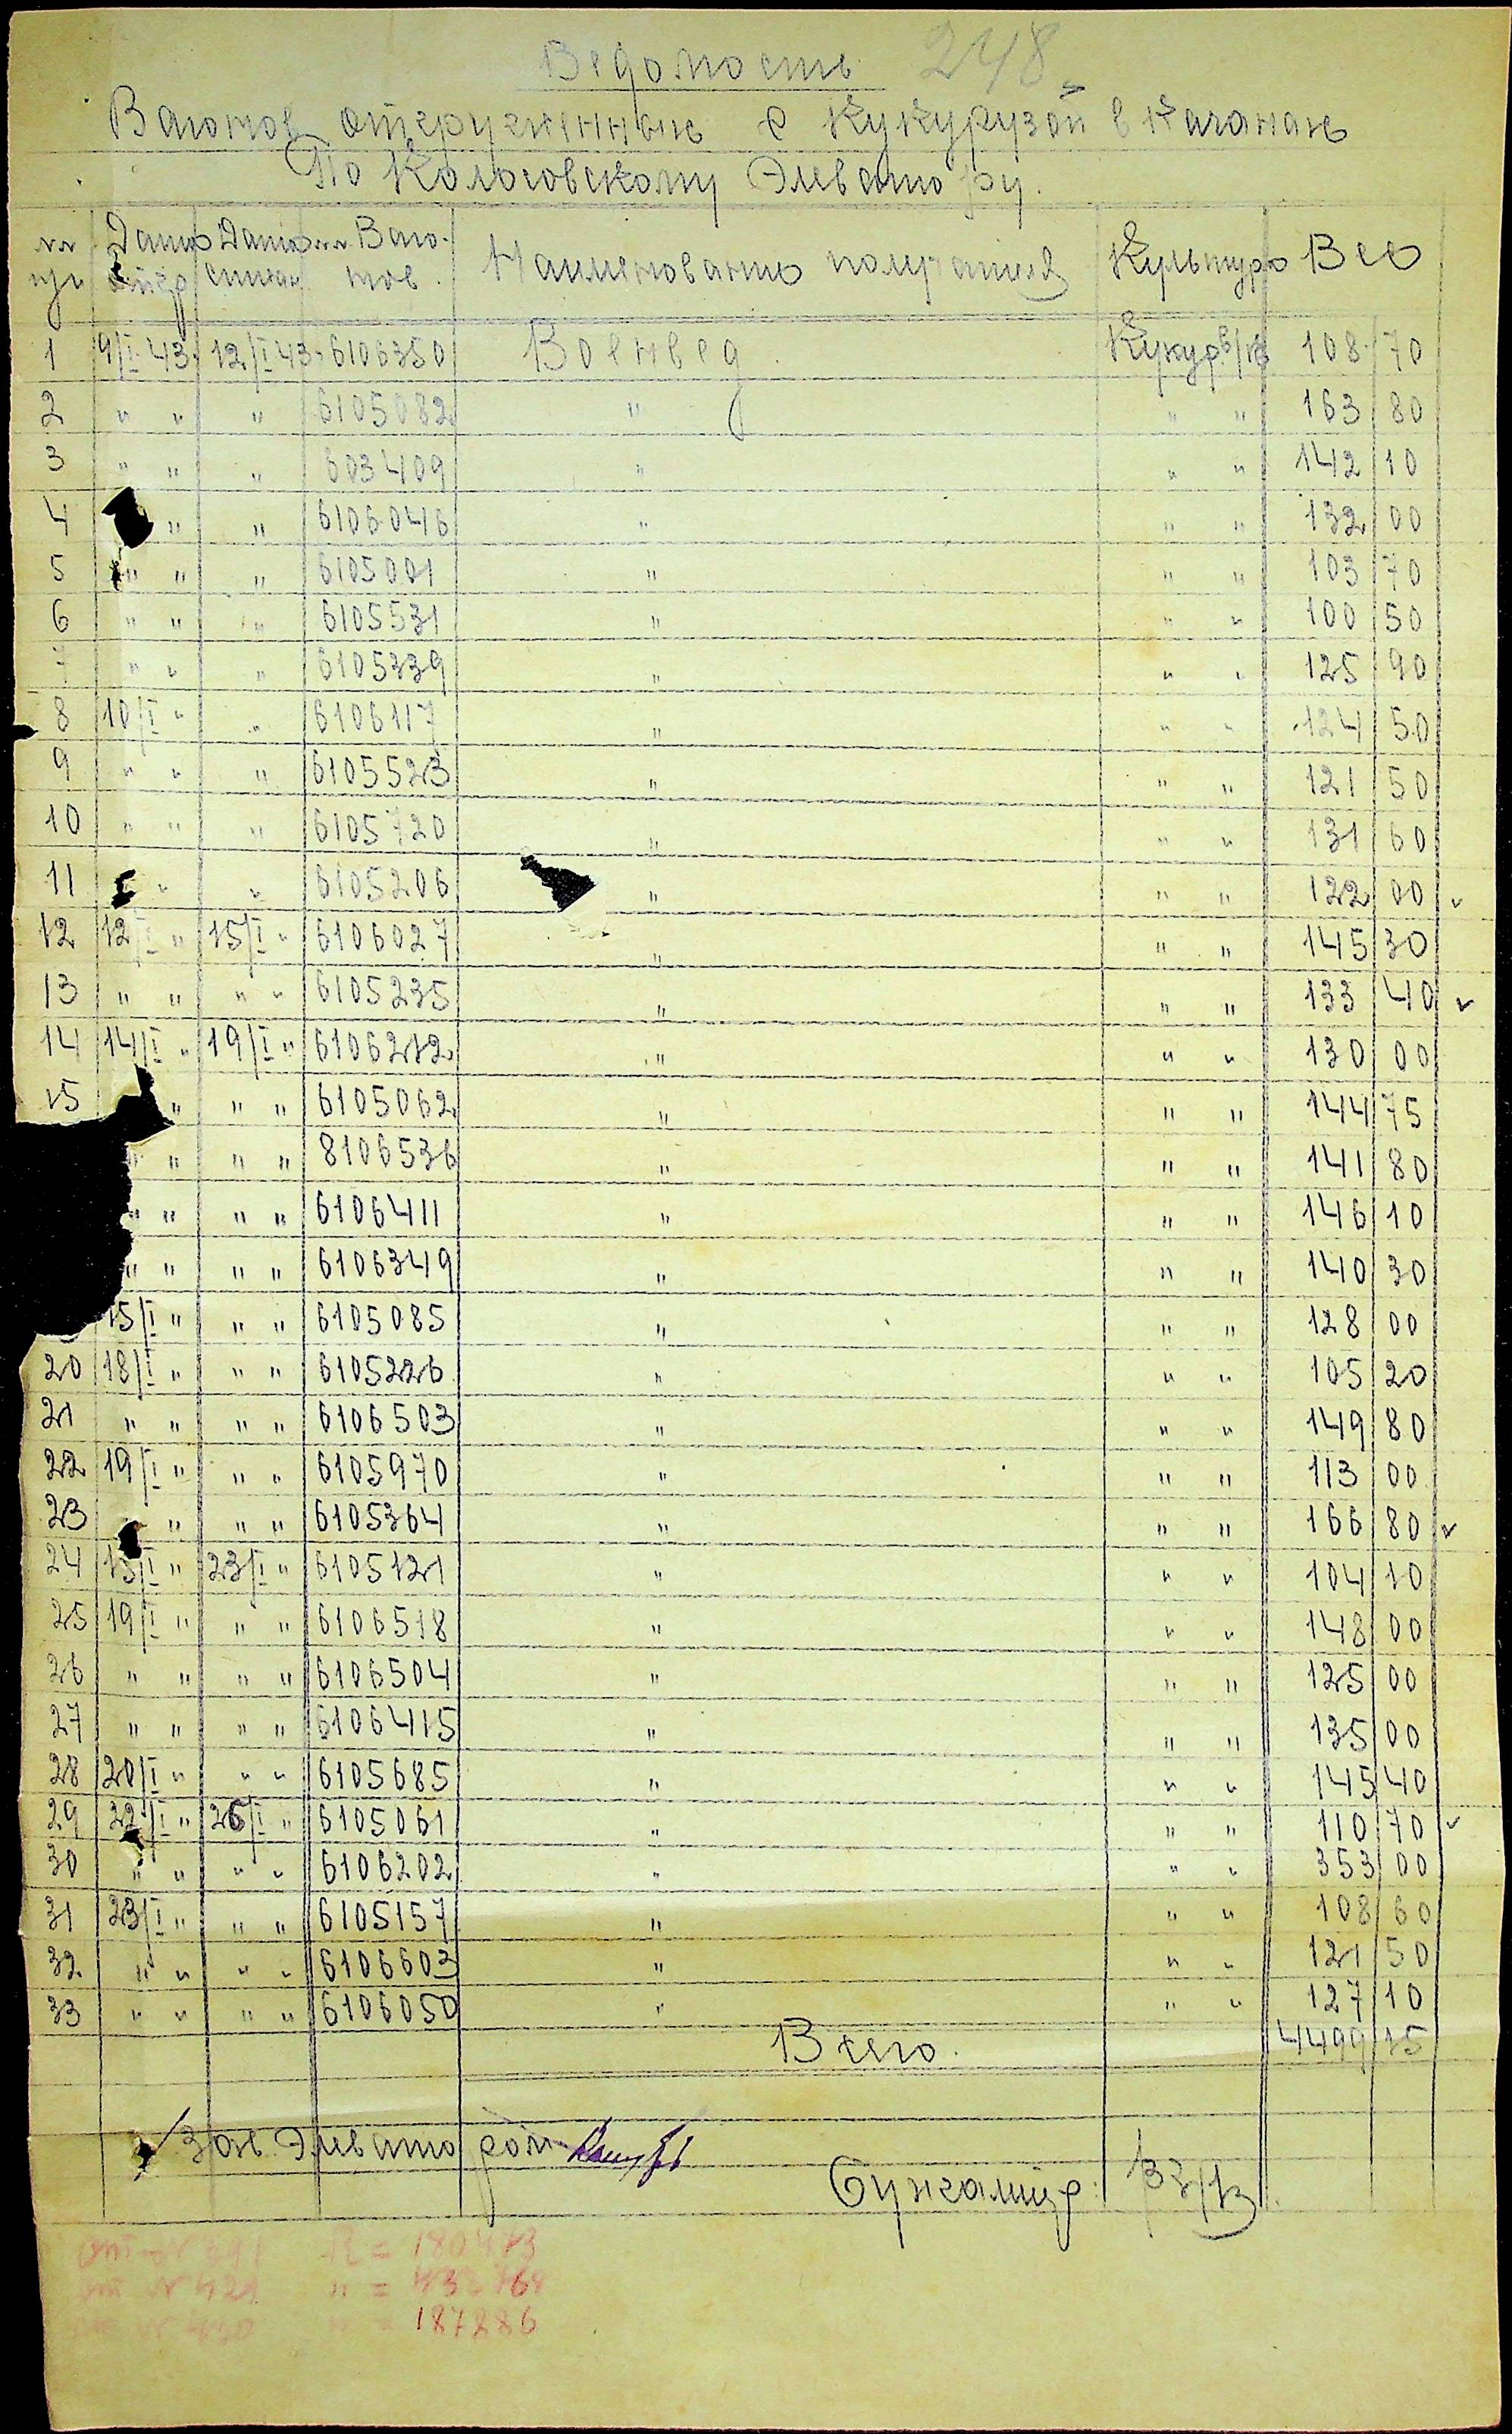 Ведомость 248
Вагонов отгруженных с Кукурузой в Качанах
По Колосовскому Элеватору.
№№ п/п Дата отгр Дата списан №№ Ваго-нов. Наименование получателя Культура Вес
1 9/I 43. 12/I 43. 6106350 Военвед. Кукур. в/к 108 70
2 " " " 6105082 " " " 163 80
3 " " " 603409 " " " 142 10
4 " " 6106046 " " " 132 00
5 " " " 6105001 " " " 103 70
6 " " " 6105531 " " " 100 50
7 " " " 6105339 " " " 125 90
8 10/I " " 6106117 " " " 124 50
9 " " " 6105523 " " " 121 50
10 " " " 6105720 " " " 131 60
11 " " 6105206 " " " 122 00
12 12/I " 15/I " 6106027 " " " 145 30
13 " " " " 6105235 " " " 133 40
14 14/I " 19/I " 6106212 " " " 130 00
15 " " " 6105062 " " " 144 75
" " " " 8106536 " " " 141 80
" " " " 6106411 " " " 146 10
" " " " 6106349 " " " 140 30
15/I " " " 6105085 " " " 128 00
20 18/I " " " 6105226 " " " 105 20
21 " " " " 6106503 " " " 149 80
22 19/I " " " 6105970 " " " 113 00
23 " " " 6105364 " " " 166 80
24 15/I " 23/I " 6105121 " " " 104 10
25 19/I " " " 6106518 " " " 148 00
26 " " " " 6106504 " " " 125 00
27 " " " " 6106415 " " " 135 00
28 20/I " " " 6105685 " " " 145 40
29 22/I " 26/I " 6105061 " " " 110 70
30 " " " " 6106202 " " " 353 00
31 23/I " " " 6105157 " " " 108 60
32 " " " " 6106603 " " " 121 50
33 " " " " 6106050 " " " 127 10
Всего. 4499 15
Зав. Элеватором
Бухгалтер:
= 180473
" =
= 187886